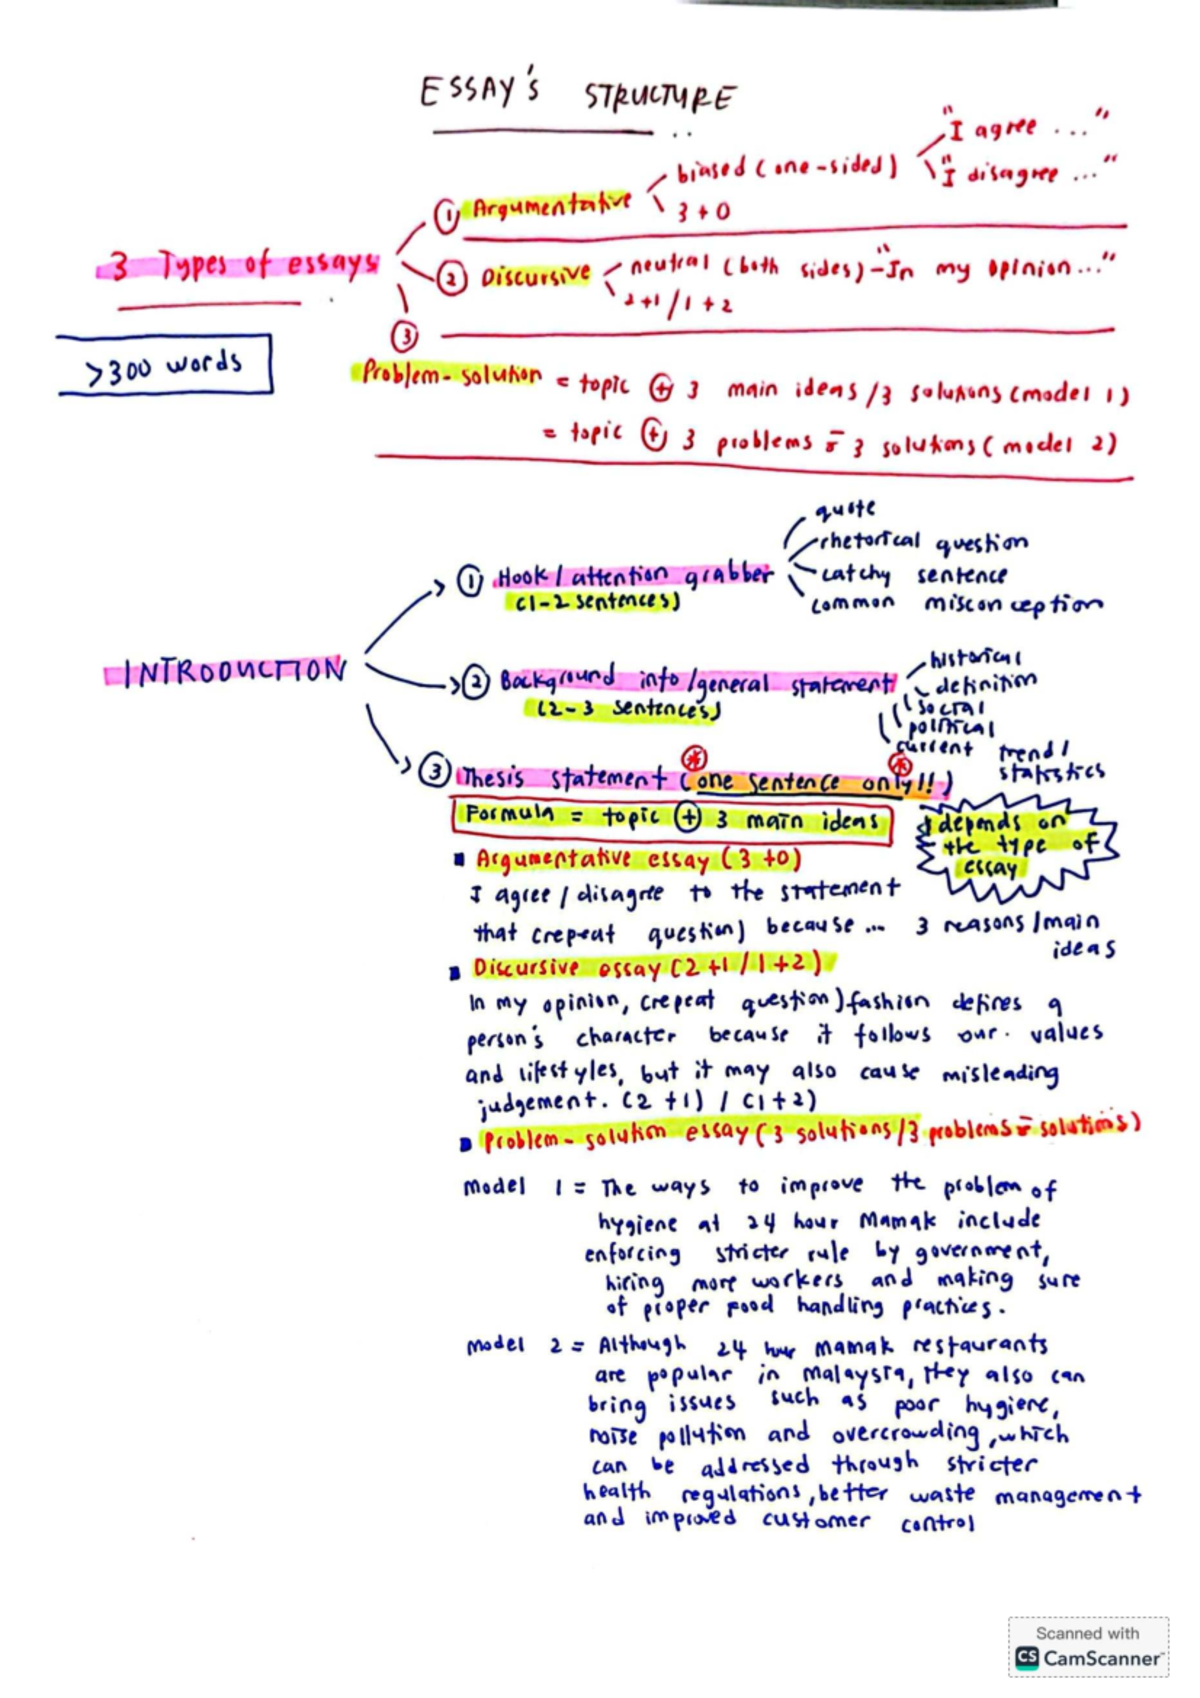 ESSAY'S STRUCTURE
3 Types of essays
① Argumentative
biased (one-sided)
"I agree ..."
"I disagree ..."
3 + 0
② Discursive
neutral (both sides) - "In my opinion..."
2+1 / 1+2
③
Problem-solution = topic ⊕ 3 main ideas /3 solutions (model 1)
= topic ⊕ 3 problems = 3 solutions (model 2)
>300 words
INTRODUCTION
① Hook / attention grabber
(1-2 sentences)
quote
rhetorical question
catchy sentence
common misconception
② Background info/general statement
(2-3 sentences)
historical
definition
social
political
current trend/
statistics
③ Thesis statement (one sentence only!!)
Formula = topic ⊕ 3 main ideas
depends on
the type of
essay
Argumentative essay (3+0)
I agree / disagree to the statement
that (repeat question) because ... 3 reasons /main
ideas
Discursive essay (2+1 / 1+2)
In my opinion, (repeat question) fashion defines a
person's character because it follows our values
and lifestyles, but it may also cause misleading
judgement. (2+1) / (1+2)
Problem-solution essay (3 solutions /3 problems = solutions)
model 1 = The ways to improve the problem of
hygiene at 24 hour Mamak include
enforcing stricter rule by government,
hiring more workers and making sure
of proper food handling practices.
model 2 = Although 24 hour mamak restaurants
are popular in malaysia, they also can
bring issues such as poor hygiene,
noise pollution and overcrowding, which
can be addressed through stricter
health regulations, better waste management
and improved customer control
Scanned with
CS CamScanner